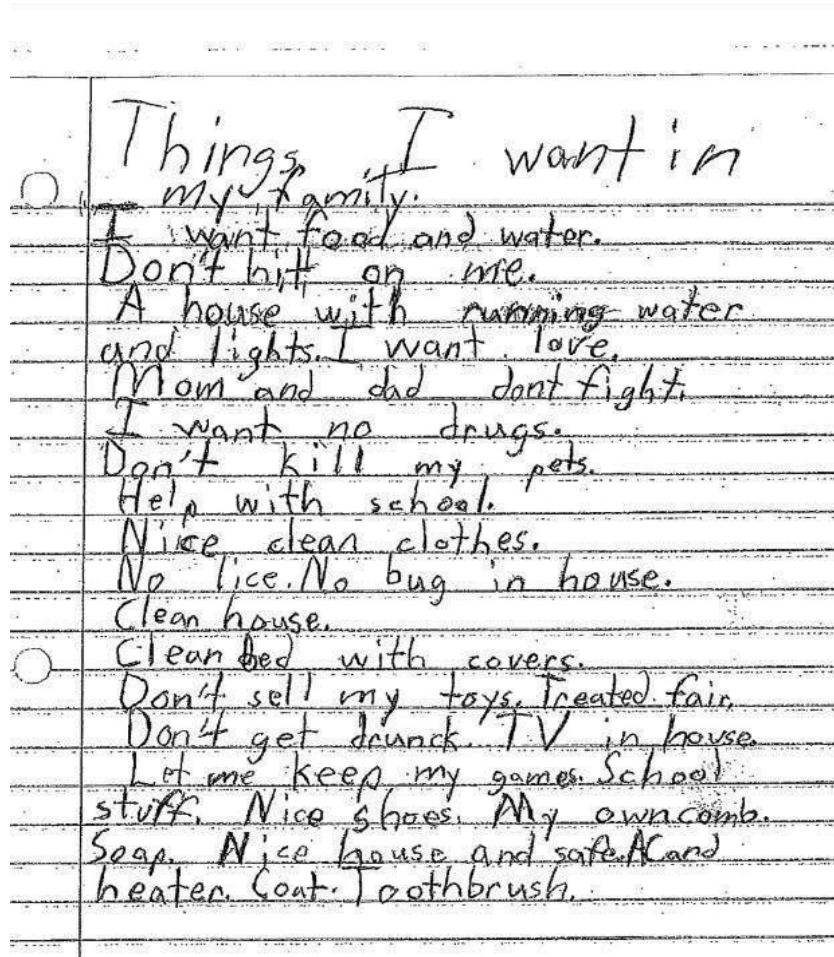 Things I want in
my family.
I want food and water.
Don't hitt on me.
A house with running water
and lights. I want love.
Mom and dad dont fight.
I want no drugs.
Don't kill my pets.
Help with school.
Nice clean clothes.
No lice. No bug in house.
Clean house.
Clean bed with covers.
Don't sell my toys. Treated fair.
Don't get drunck. TV in house.
Let me keep my games. School
stuff. Nice shoes. My own comb.
Soap. Nice house and safe. AC and
heater. Coat. Toothbrush.